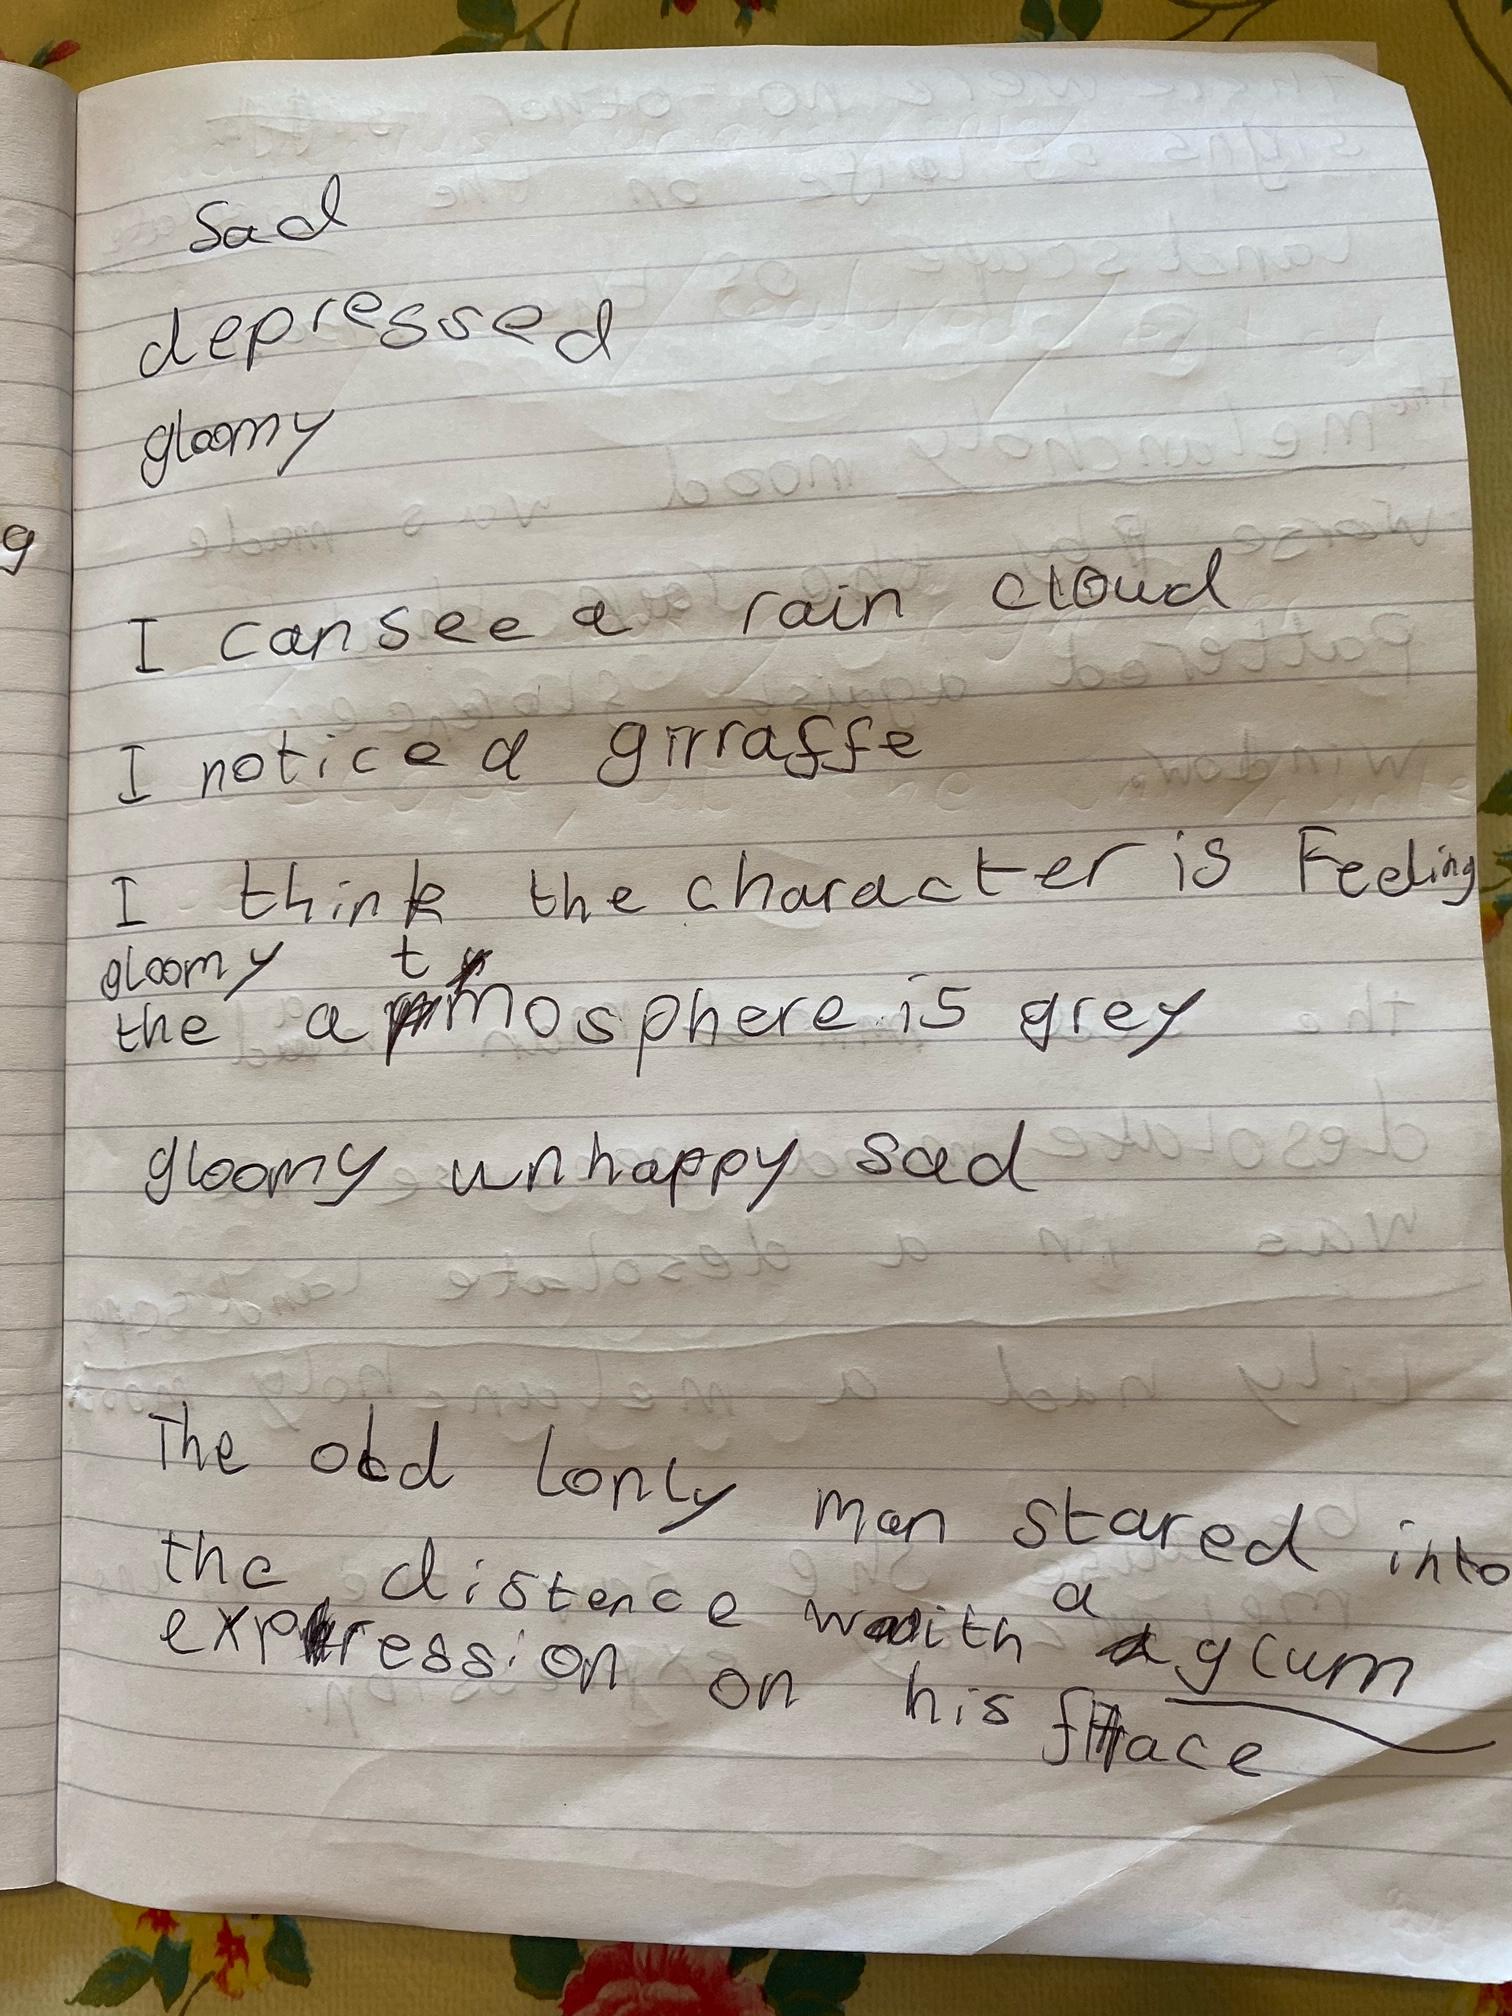 sad
depressed
gloomy
g
I can see a rain cloud
I notice a girraffe
I think the character is Feeling
gloomy
the atmosphere is grey
gloomy unhappy sad
The old lonly man stared into
the distence with a glum
expression on his face